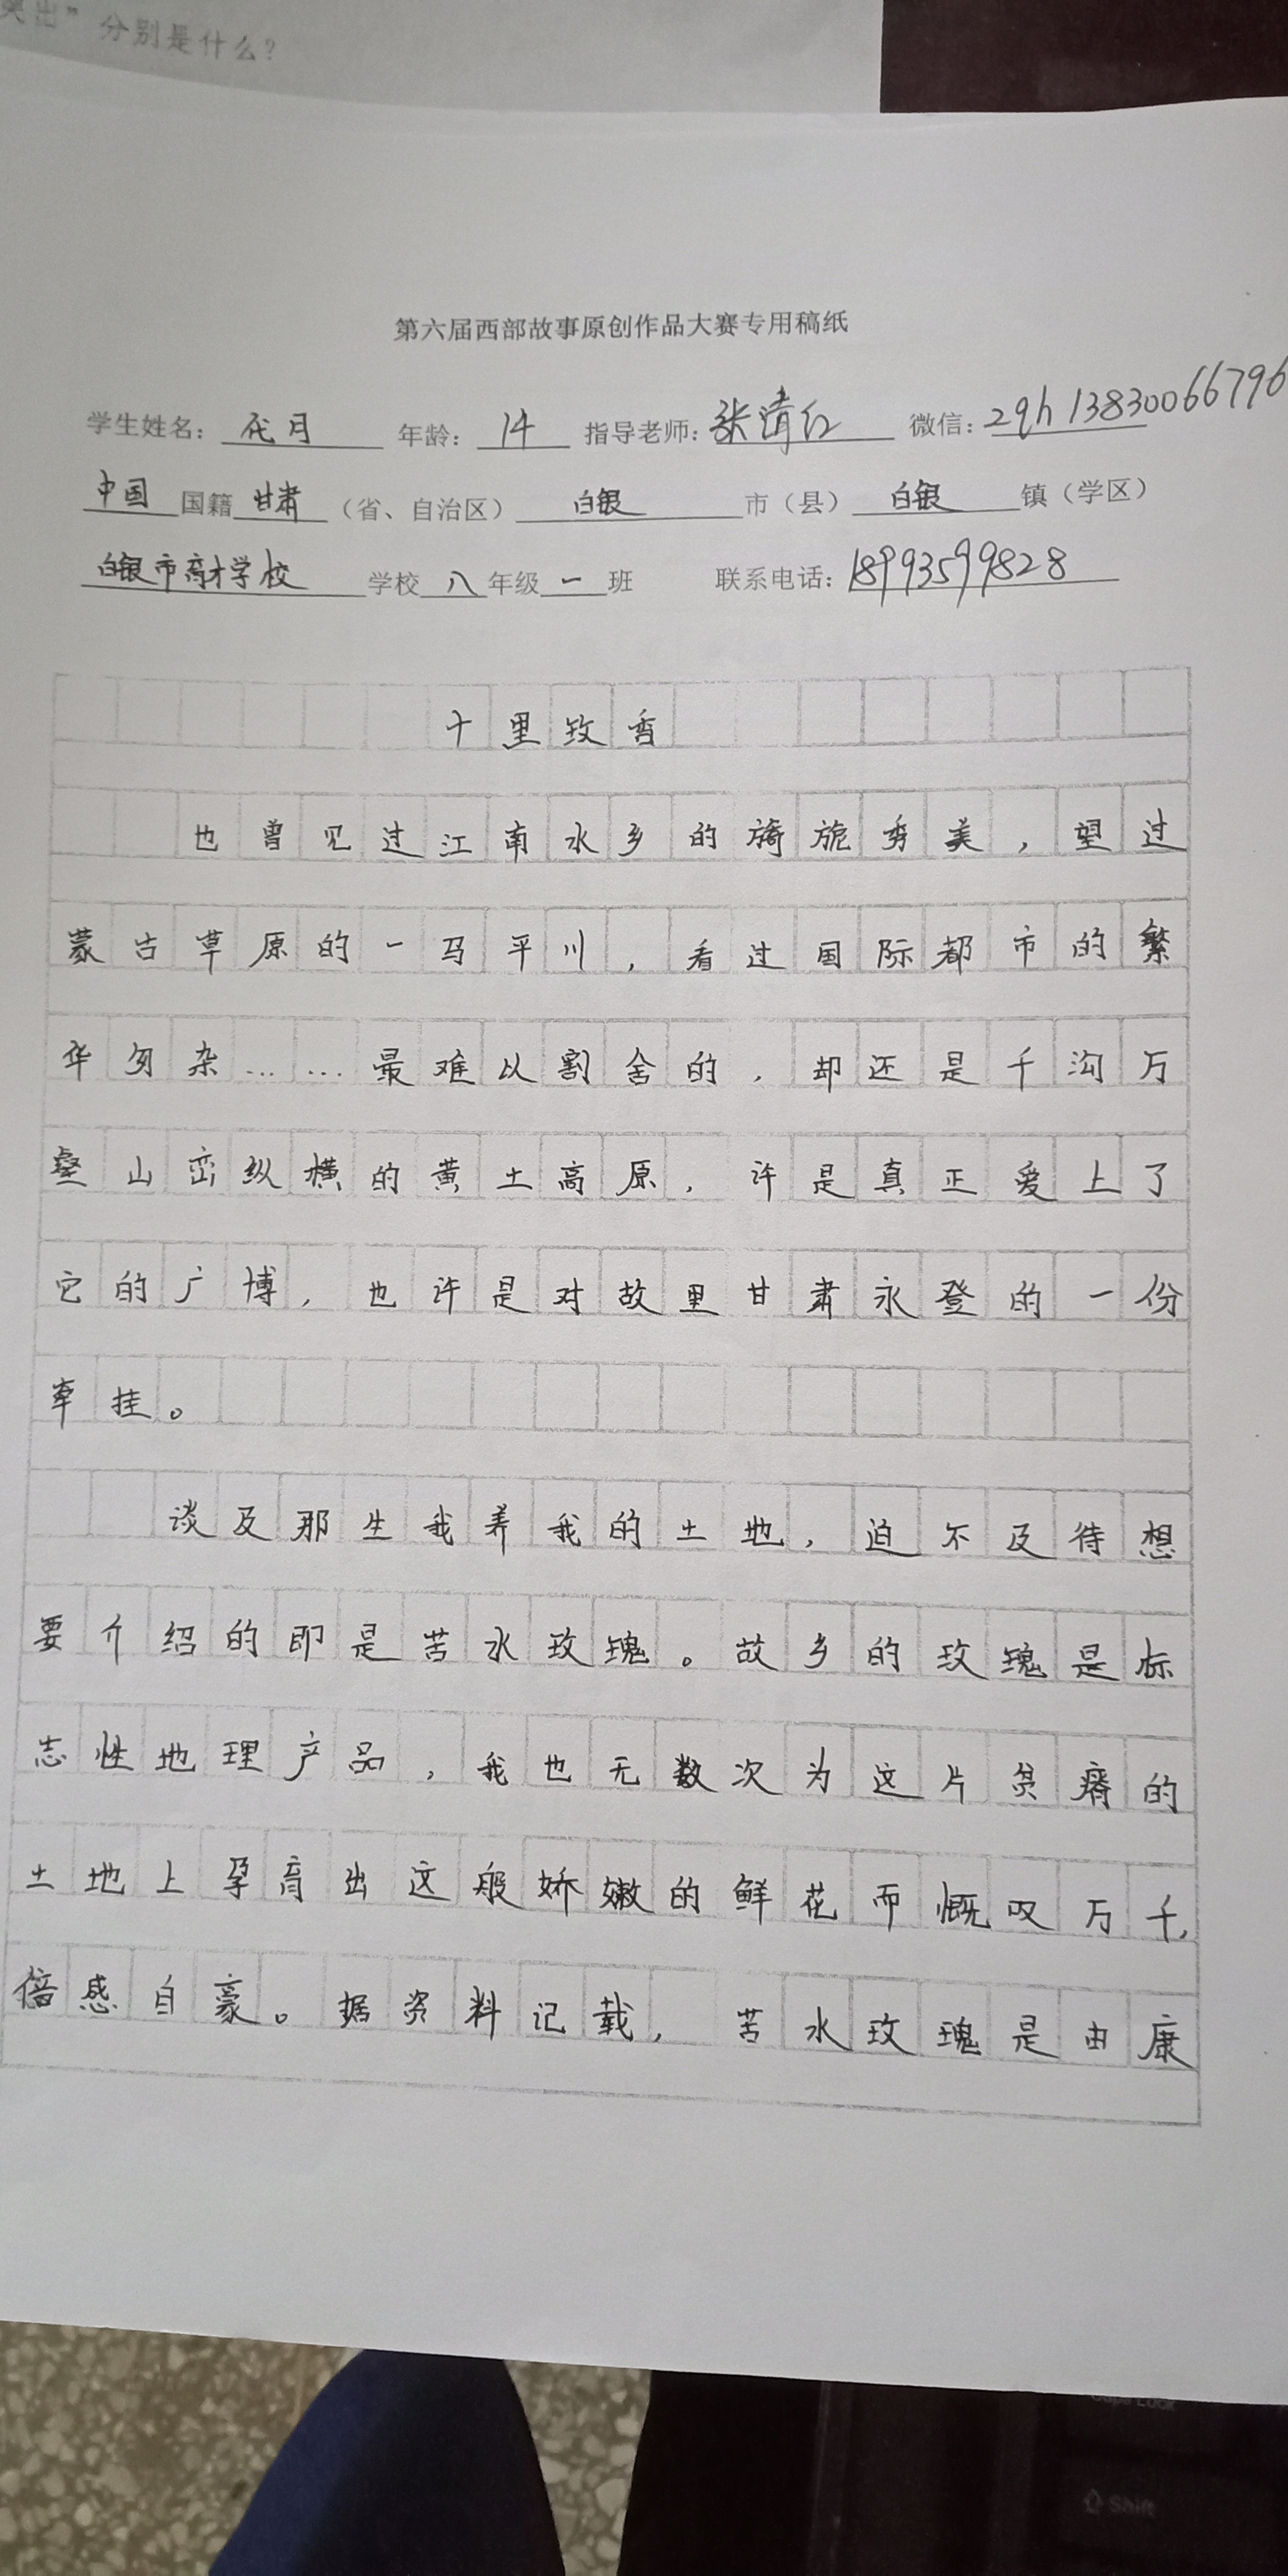 突出”分别是什么？
第六届西部故事原创作品大赛专用稿纸
学生姓名：代月 年龄：14 指导老师：张清红 微信：zqh13830066796
中国国籍甘肃（省、自治区）白银市（县）白银镇（学区）
白银市育才学校学校八年级一班 联系电话：18993599828
十里玫香
也曾见过江南水乡的旖旎秀美，望过
蒙古草原的一马平川，看过国际都市的繁
华匆杂……最难以割舍的，却还是千沟万
壑山峦纵横的黄土高原，许是真正爱上了
它的广博，也许是对故里甘肃永登的一份
牵挂。
谈及那生我养我的土地，迫不及待想
要介绍的即是苦水玫瑰。故乡的玫瑰是标
志性地理产品，我也无数次为这片贫瘠的
土地上孕育出这般娇嫩的鲜花而慨叹万千，
倍感自豪。据资料记载，苦水玫瑰是由康
Caps Lock
Shift